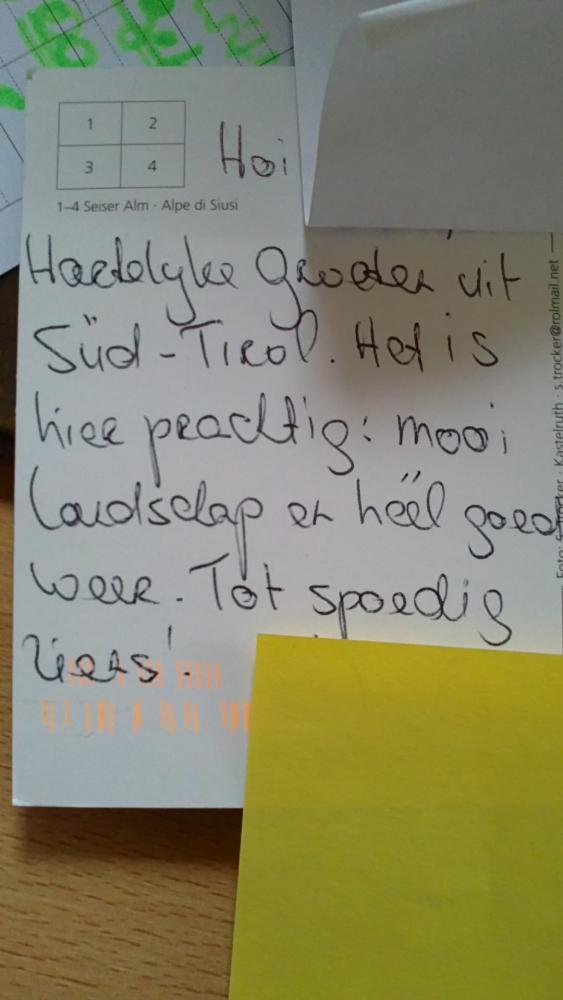 1 2
3 4
1–4 Seiser Alm - Alpe di Siusi
Hoi
Hartelyke Groeten uit
Süd-Tirol. Het is
hier prachtig: mooi
landschap en héél goed
weer. Tot spoedig
Kastelruth · s.trocker@rolmail.net